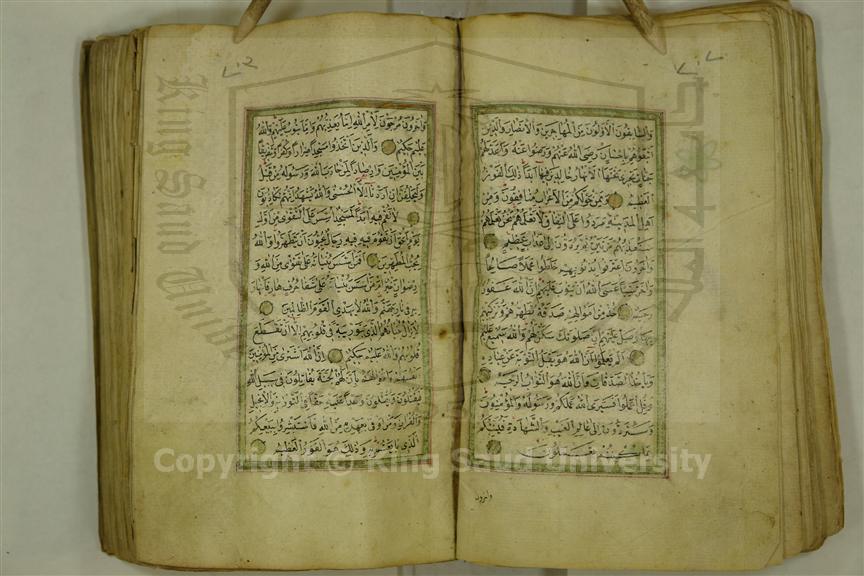 والسابقون الاولون من المهاجرين والانصار والذين
اتبعوهم باحسان رضي الله عنهم ورضوا عنه واعد لهم
جنات تجري تحتها الانهار خالدين فيها ابدا ذلك الفوز
العظيم وممن حولكم من الاعراب منافقون ومن
اهل المدينة مردوا على النفاق لا تعلمهم نحن نعلمهم
سنعذبهم مرتين ثم يردون الى عذاب عظيم
واخرون اعترفوا بذنوبهم خلطوا عملا صالحا
واخر سيئا عسى الله ان يتوب عليهم ان الله غفور
رحيم خذ من اموالهم صدقة تطهرهم وتزكيهم
بها وصل عليهم ان صلوتك سكن لهم والله سميع عليم
الم يعلموا ان الله هو يقبل التوبة عن عباده
وياخذ الصدقات وان الله هو التواب الرحيم
وقل اعملوا فسيرى الله عملكم ورسوله والمؤمنون
وستردون الى عالم الغيب والشهادة فينبئكم
بما كنتم تعملون
واخرون
واخرون مرجون لامر الله اما يعذبهم واما يتوب عليهم والله
عليم حكيم والذين اتخذوا مسجدا ضرارا وكفرا وتفريقا
بين المؤمنين وارصادا لمن حارب الله ورسوله من قبل
وليحلفن ان اردنا الا الحسنى والله يشهد انهم لكاذبون
لا تقم فيه ابدا لمسجد اسس على التقوى من اول
يوم احق ان تقوم فيه فيه رجال يحبون ان يتطهروا والله
يحب المطهرين افمن اسس بنيانه على تقوى من الله و
رضوان خير ام من اسس بنيانه على شفا جرف هار فانهار
به في نار جهنم والله لا يهدي القوم الظالمين
لا يزال بنيانهم الذي بنوا ريبة في قلوبهم الا ان تقطع
قلوبهم والله عليم حكيم ان الله اشترى من المؤمنين
انفسهم واموالهم بان لهم الجنة يقاتلون في سبيل الله
فيقتلون ويقتلون وعدا عليه حقا في التورية والانجيل
والقران ومن اوفى بعهده من الله فاستبشروا ببيعكم
الذي بايعتم به وذلك هو الفوز العظيم
King Saud University
Copyright © King Saud University